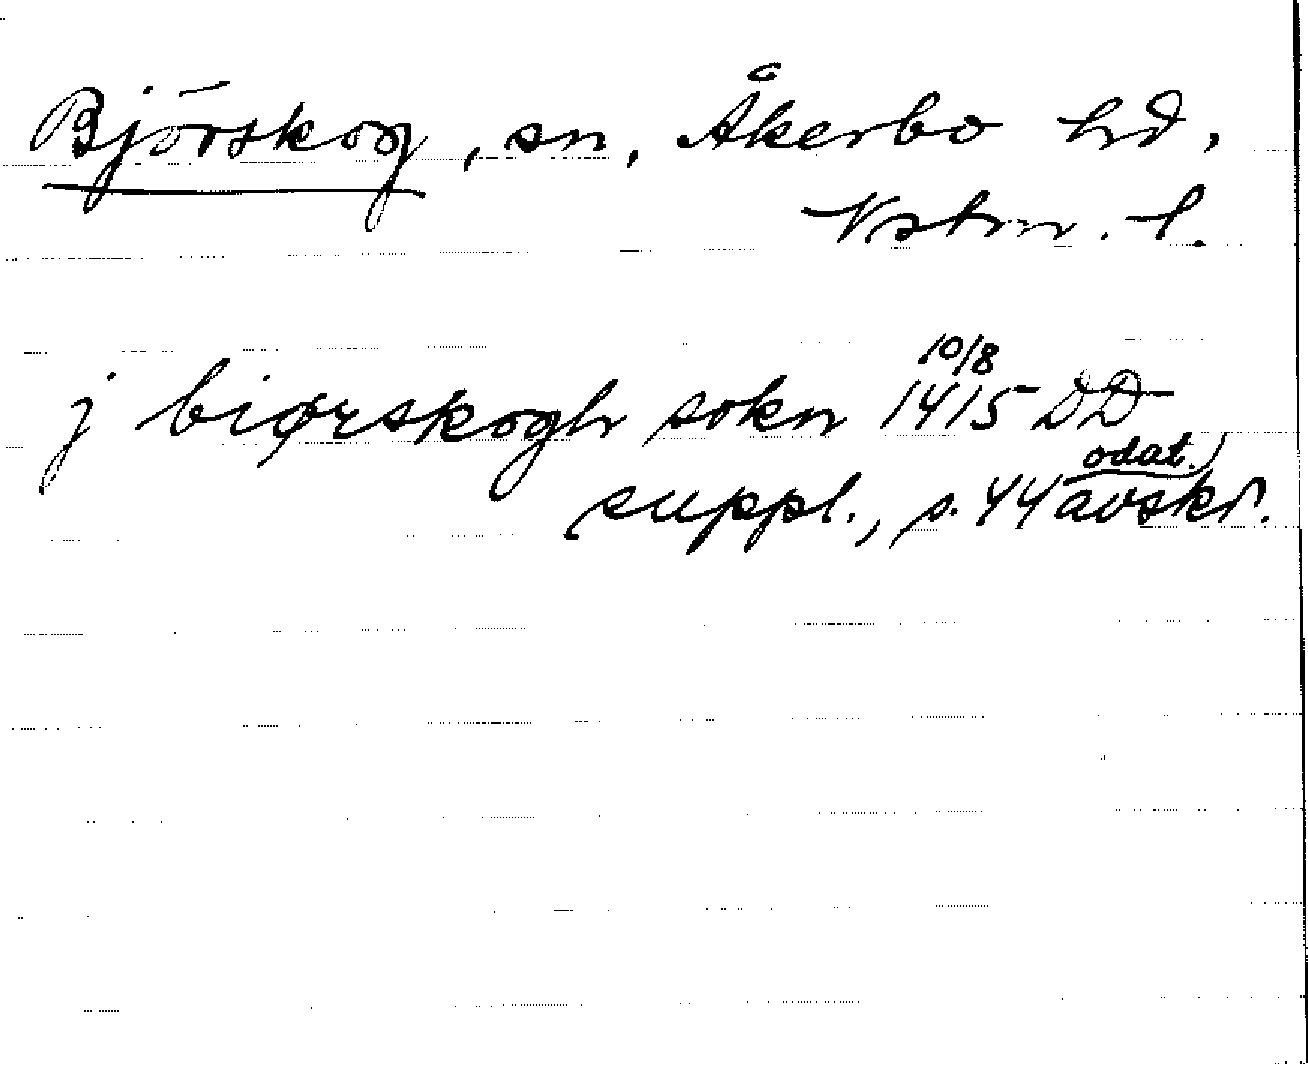 Björskog, sn, Åkerbo hd,
Vstm. l.
j biørskogh sokn 1415 10/8 DD
suppl., s. 44 odat. avskr.